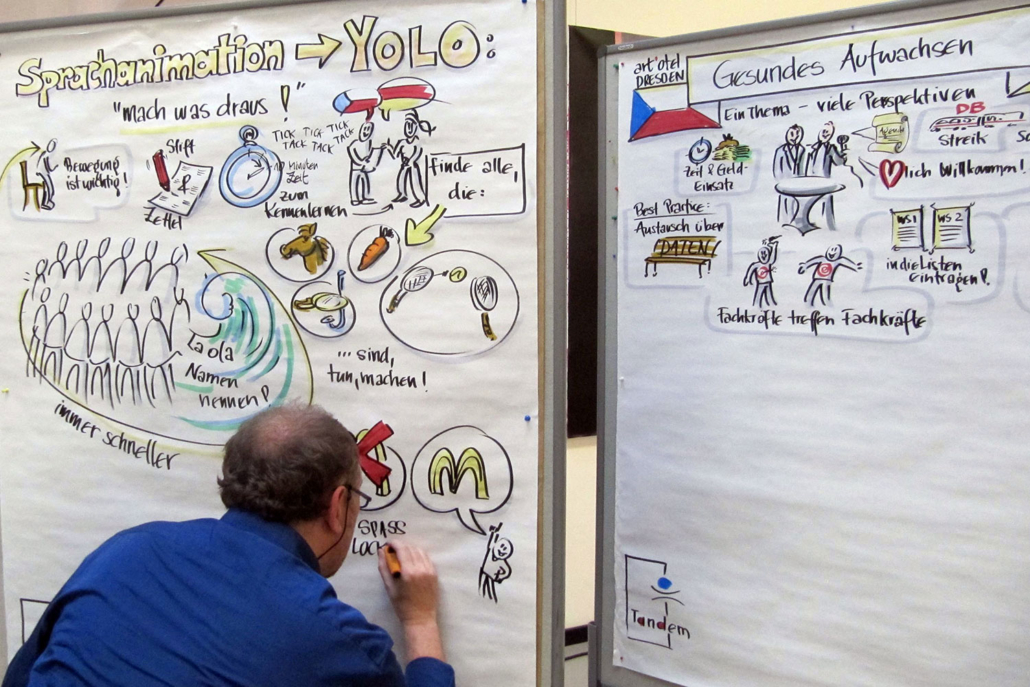 Sprachanimation → YOLO:
"mach was draus!"
Bewegung
ist wichtig!
Stift
Zettel
TICK TICK TICK
TACK TACK TACK
10 Minuten
Zeit
zum
Kennenlernen
finde alle,
die:
la ola
Namen
nennen!
immer schneller
... sind,
tun, machen!
M
SPASS
art'otel
DRESDEN
Gesundes Aufwachsen
Ein Thema - viele Perspektiven
Zeit & Geld-
Einsatz
Agenda
DB
Streik
lich Willkommen!
Best Practice:
Austausch über
DATEN
WS 1
WS 2
in die Listen
eintragen!
Fachkräfte treffen Fachkräfte
Tandem